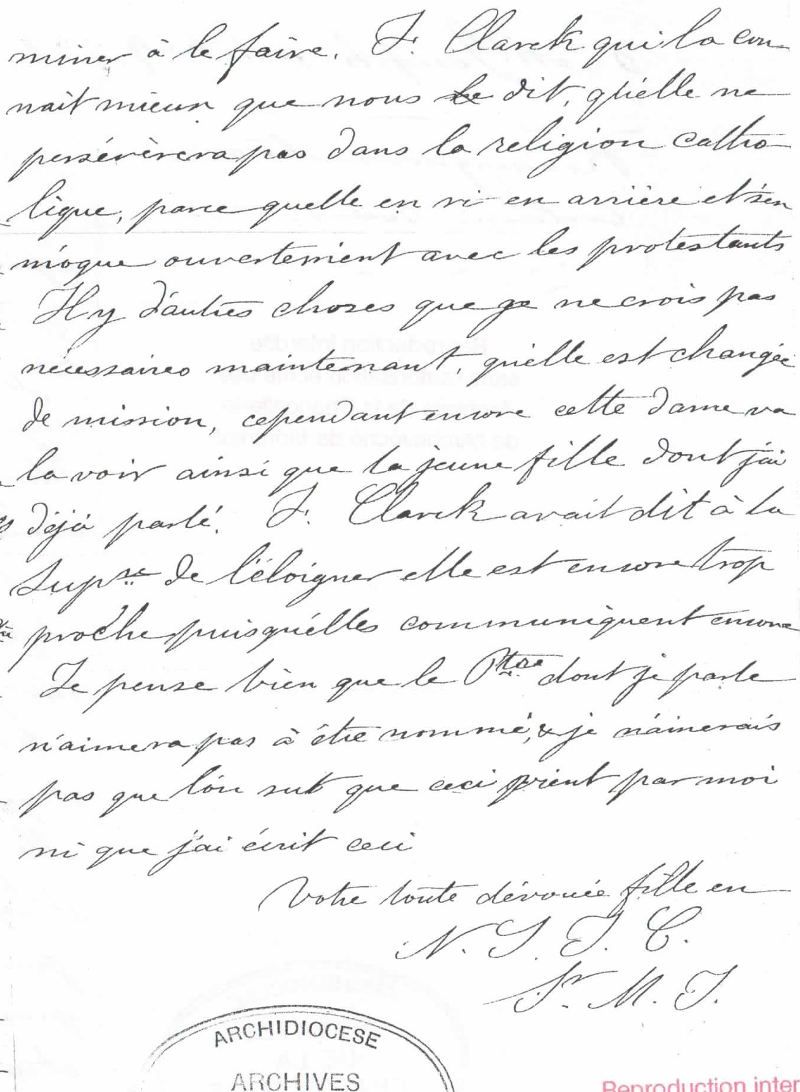 miner à le faire. F. Clarck qui la con-
nait mieux que nous le dit, qu'elle ne
persévèrera pas dans la religion catho-
lique, parce quelle en ri en arrière et s'en
moque ouvertement avec les protestants
Il y d'autres choses que je ne crois pas
nécessaires maintenant, qu'elle est changée
de mission, cependant encore cette dame va
la voir ainsi que la jeune fille dont j'ai
déjà parlé. F. Clarck avait dit à la
Supre de l'éloigner elle est encore trop
proche puisqu'elles communiquent encore
Je pense bien que le Ptre dont je parle
n'aimera pas à être nommé, & je n'aimerais
pas que l'on sut que ceci vient par moi
ni que j'ai écrit ceci
Votre toute dévouée fille en
N. S. J. C.
Sr M. J.
ARCHIDIOCESE
ARCHIVES
Reproduction inter